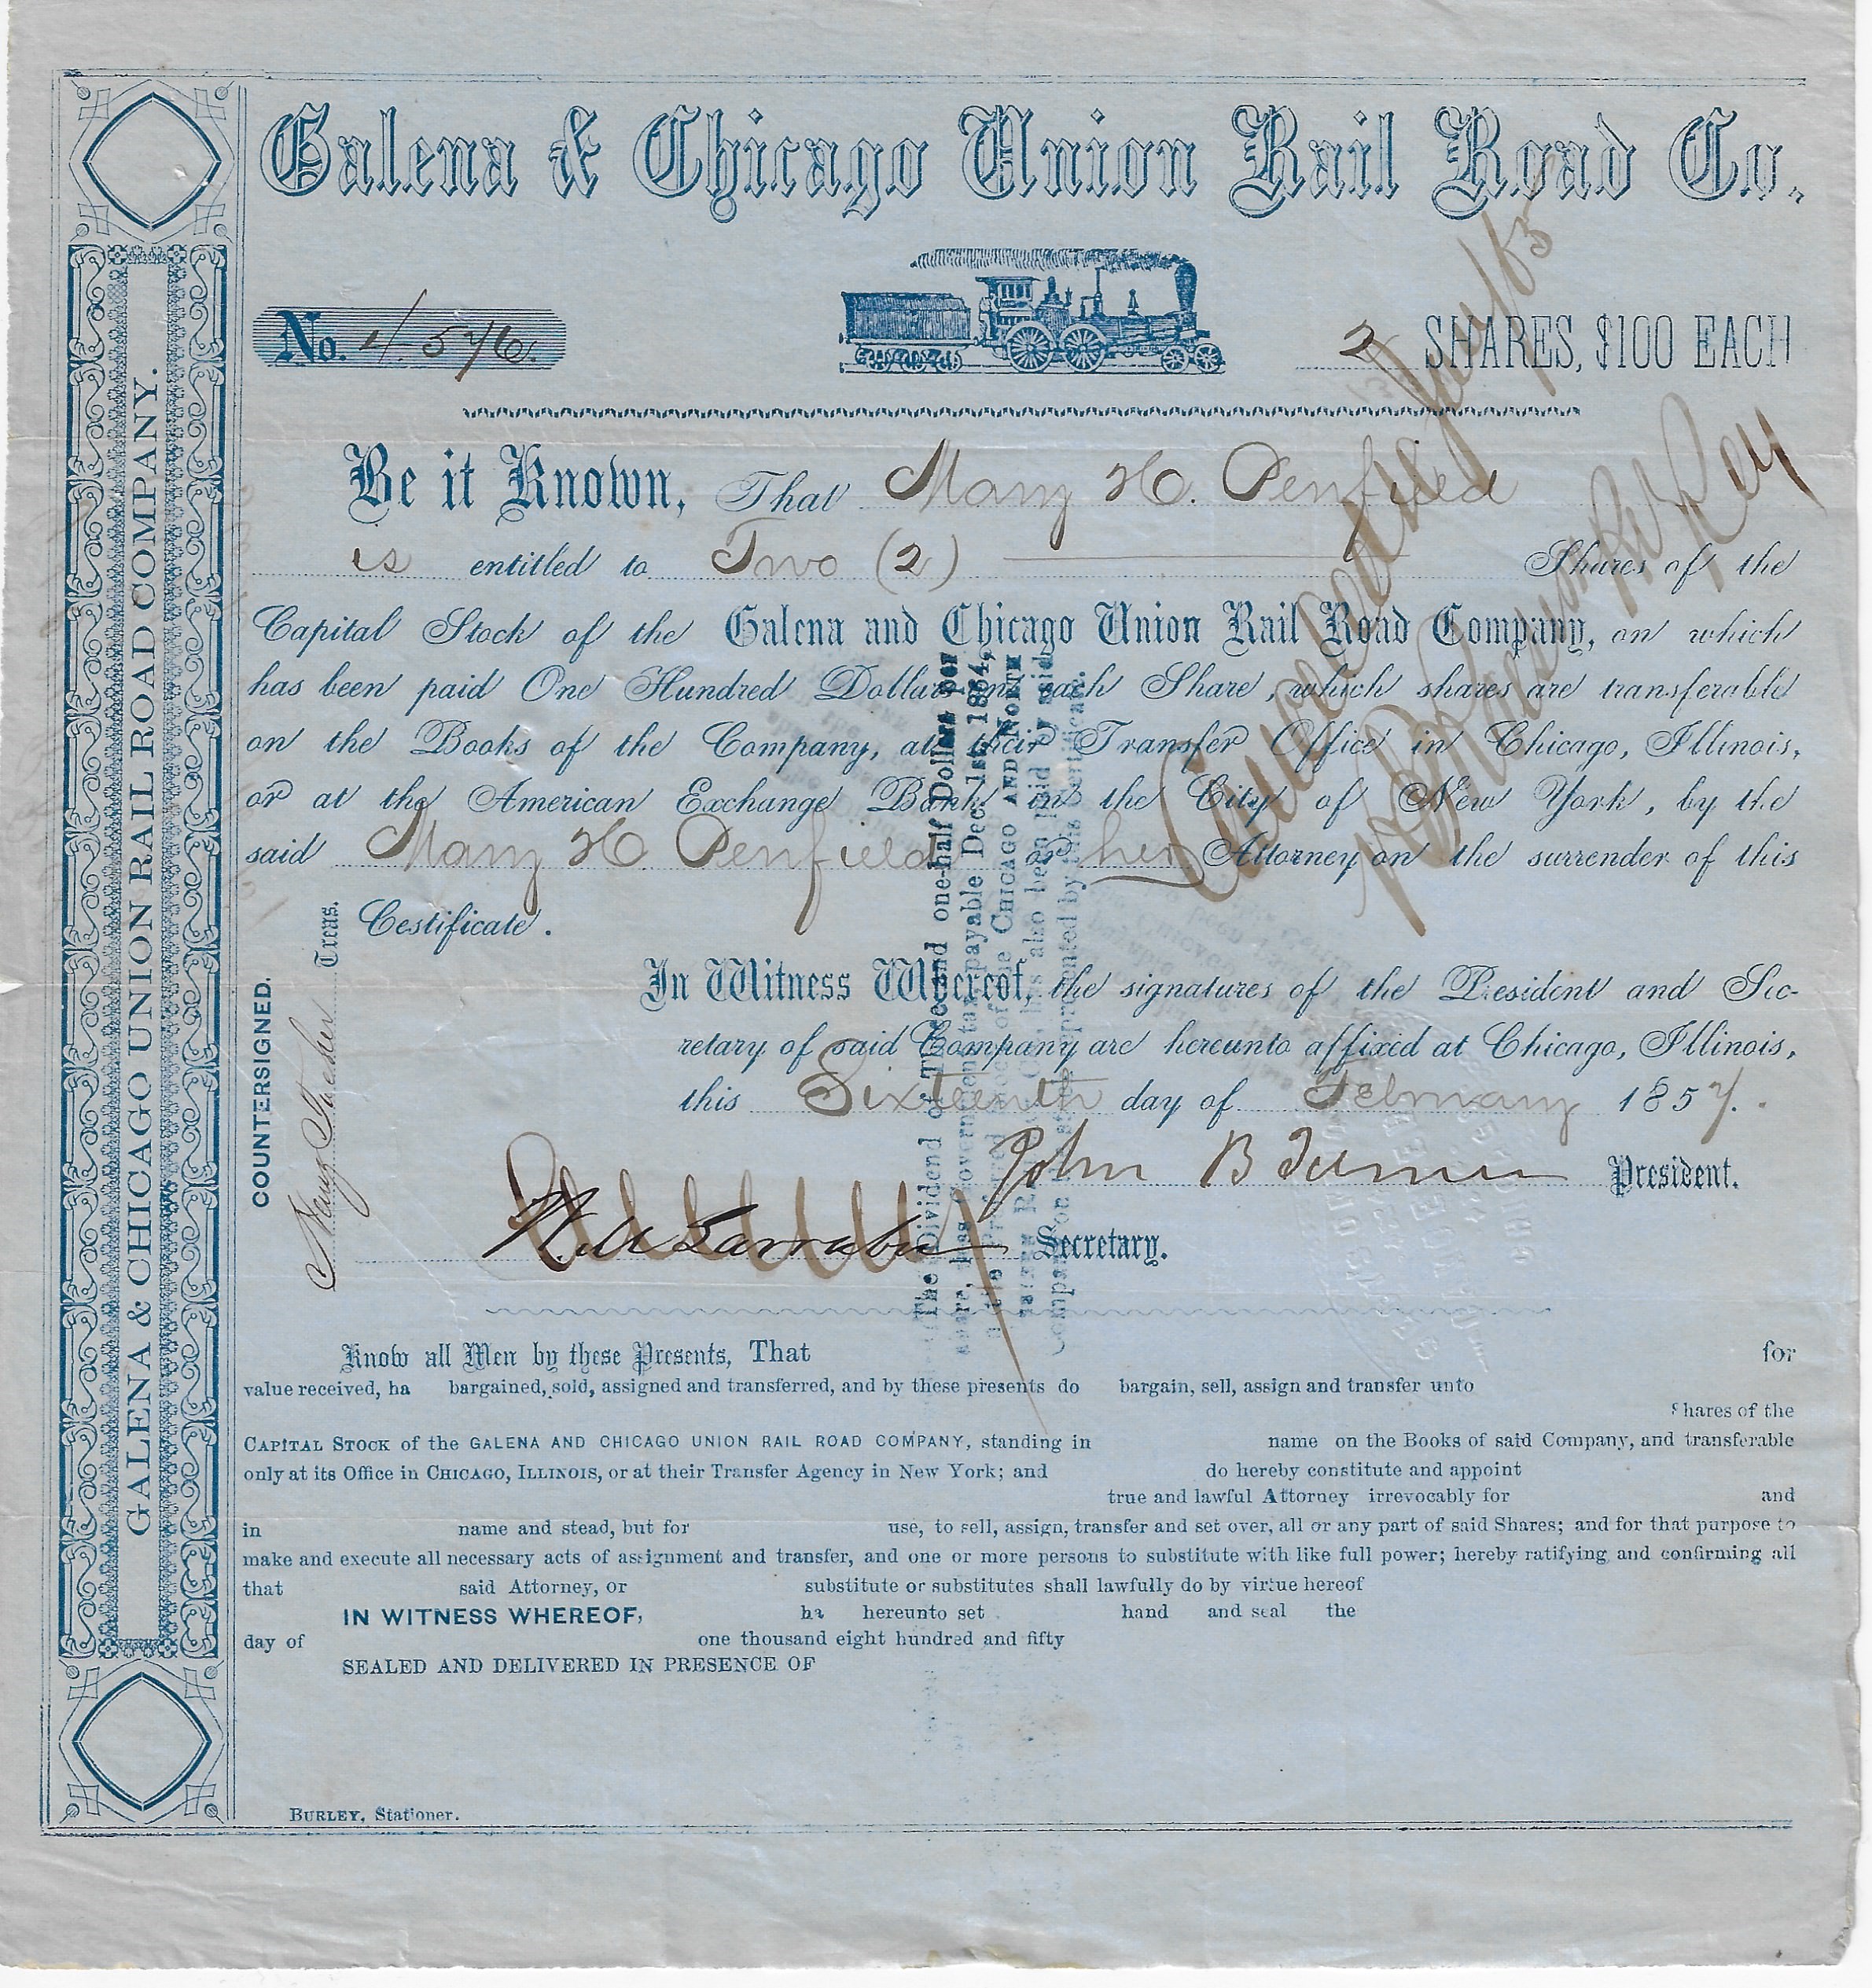 Galena & Chicago Union Rail Road Co.
No. 4576.
2 SHARES, $100 EACH
Be it Known, That Mary H. Penfield
is entitled to Two (2) Shares of the
Capital Stock of the Galena and Chicago Union Rail Road Company, on which
has been paid One Hundred Dollars on each Share, which shares are transferable
on the Books of the Company, at their Transfer Office in Chicago, Illinois,
or at the American Exchange Bank in the City of New York, by the
said Mary H. Penfield or her Attorney on the surrender of this
Certificate.
In Witness Whereof, the signatures of the President and Sec-
retary of said Company are hereunto affixed at Chicago, Illinois,
this Sixteenth day of February 1857.
John B Turner President.
W M Larrabee Secretary.
COUNTERSIGNED.
Henry Tucker Treas.
GALENA & CHICAGO UNION RAIL ROAD COMPANY.
GALENA & CHICAGO UNION RAIL ROAD COMPANY.
Cancelled
The Dividend of Three and one-half Dollars per
share, less Government tax, payable Dec. 1st, 1864,
in the Preferred Stock of the CHICAGO AND NORTH
has also been paid by said
Company on the shares represented by this Certificate.
Know all Men by these Presents, That for
value received, ha bargained, sold, assigned and transferred, and by these presents do bargain, sell, assign and transfer unto
Shares of the
CAPITAL STOCK of the GALENA AND CHICAGO UNION RAIL ROAD COMPANY, standing in name on the Books of said Company, and transferable
only at its Office in CHICAGO, ILLINOIS, or at their Transfer Agency in New York; and do hereby constitute and appoint
true and lawful Attorney irrevocably for and
in name and stead, but for use, to sell, assign, transfer and set over, all or any part of said Shares; and for that purpose to
make and execute all necessary acts of assignment and transfer, and one or more persons to substitute with like full power; hereby ratifying and confirming all
that said Attorney, or substitute or substitutes shall lawfully do by virtue hereof
IN WITNESS WHEREOF, ha hereunto set hand and seal the
day of one thousand eight hundred and fifty
SEALED AND DELIVERED IN PRESENCE OF
BURLEY, Stationer.